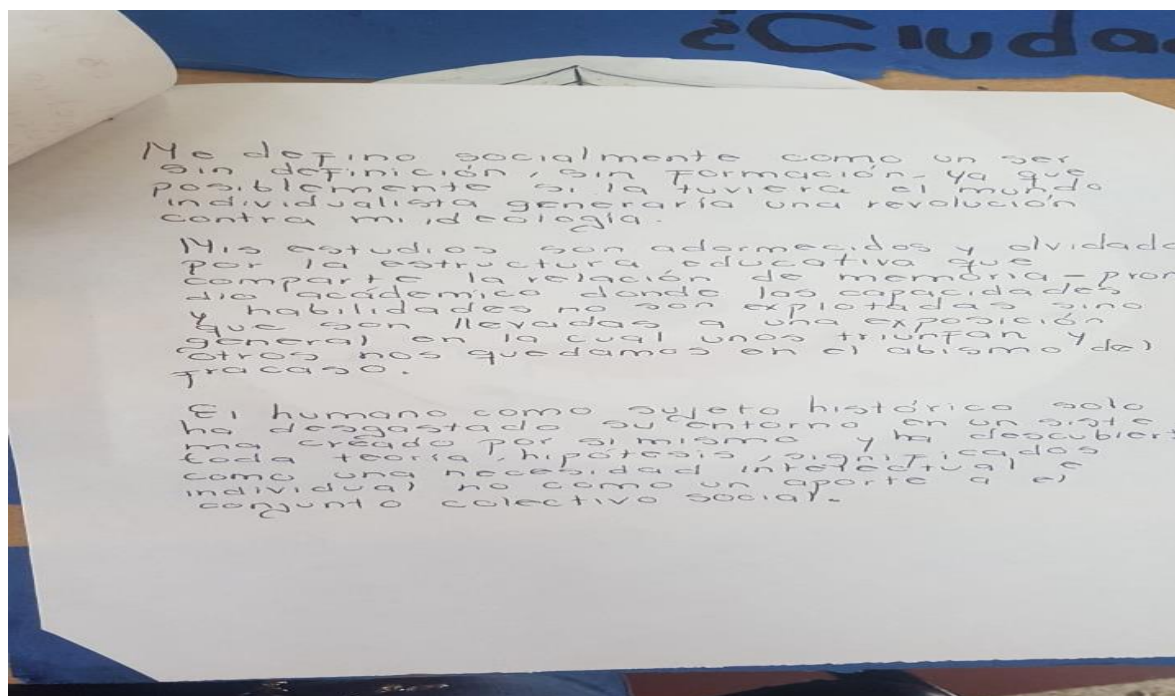 ¿Ciudad
Me defino socialmente como un ser
sin definición, sin formación, ya que
posiblemente si la tuviera el mundo
individualista generaría una revolución
contra mi ideología.
Mis estudios son adormecidos y olvidado
por la estructura educativa que
comparte la relación de memoria - prom
dio académico donde las capacidades
y habilidades no son explotadas sino
que son llevadas a una exposición
general en la cual unos triunfan y
otros nos quedamos en el abismo del
fracaso.
El humano como sujeto histórico solo
ha desgastado su entorno en un siste
ma creado por si mismo y ha descubiert
cada teoría, hipótesis, significados
como una necesidad intelectual e
individual no como un aporte a el
conjunto colectivo social.